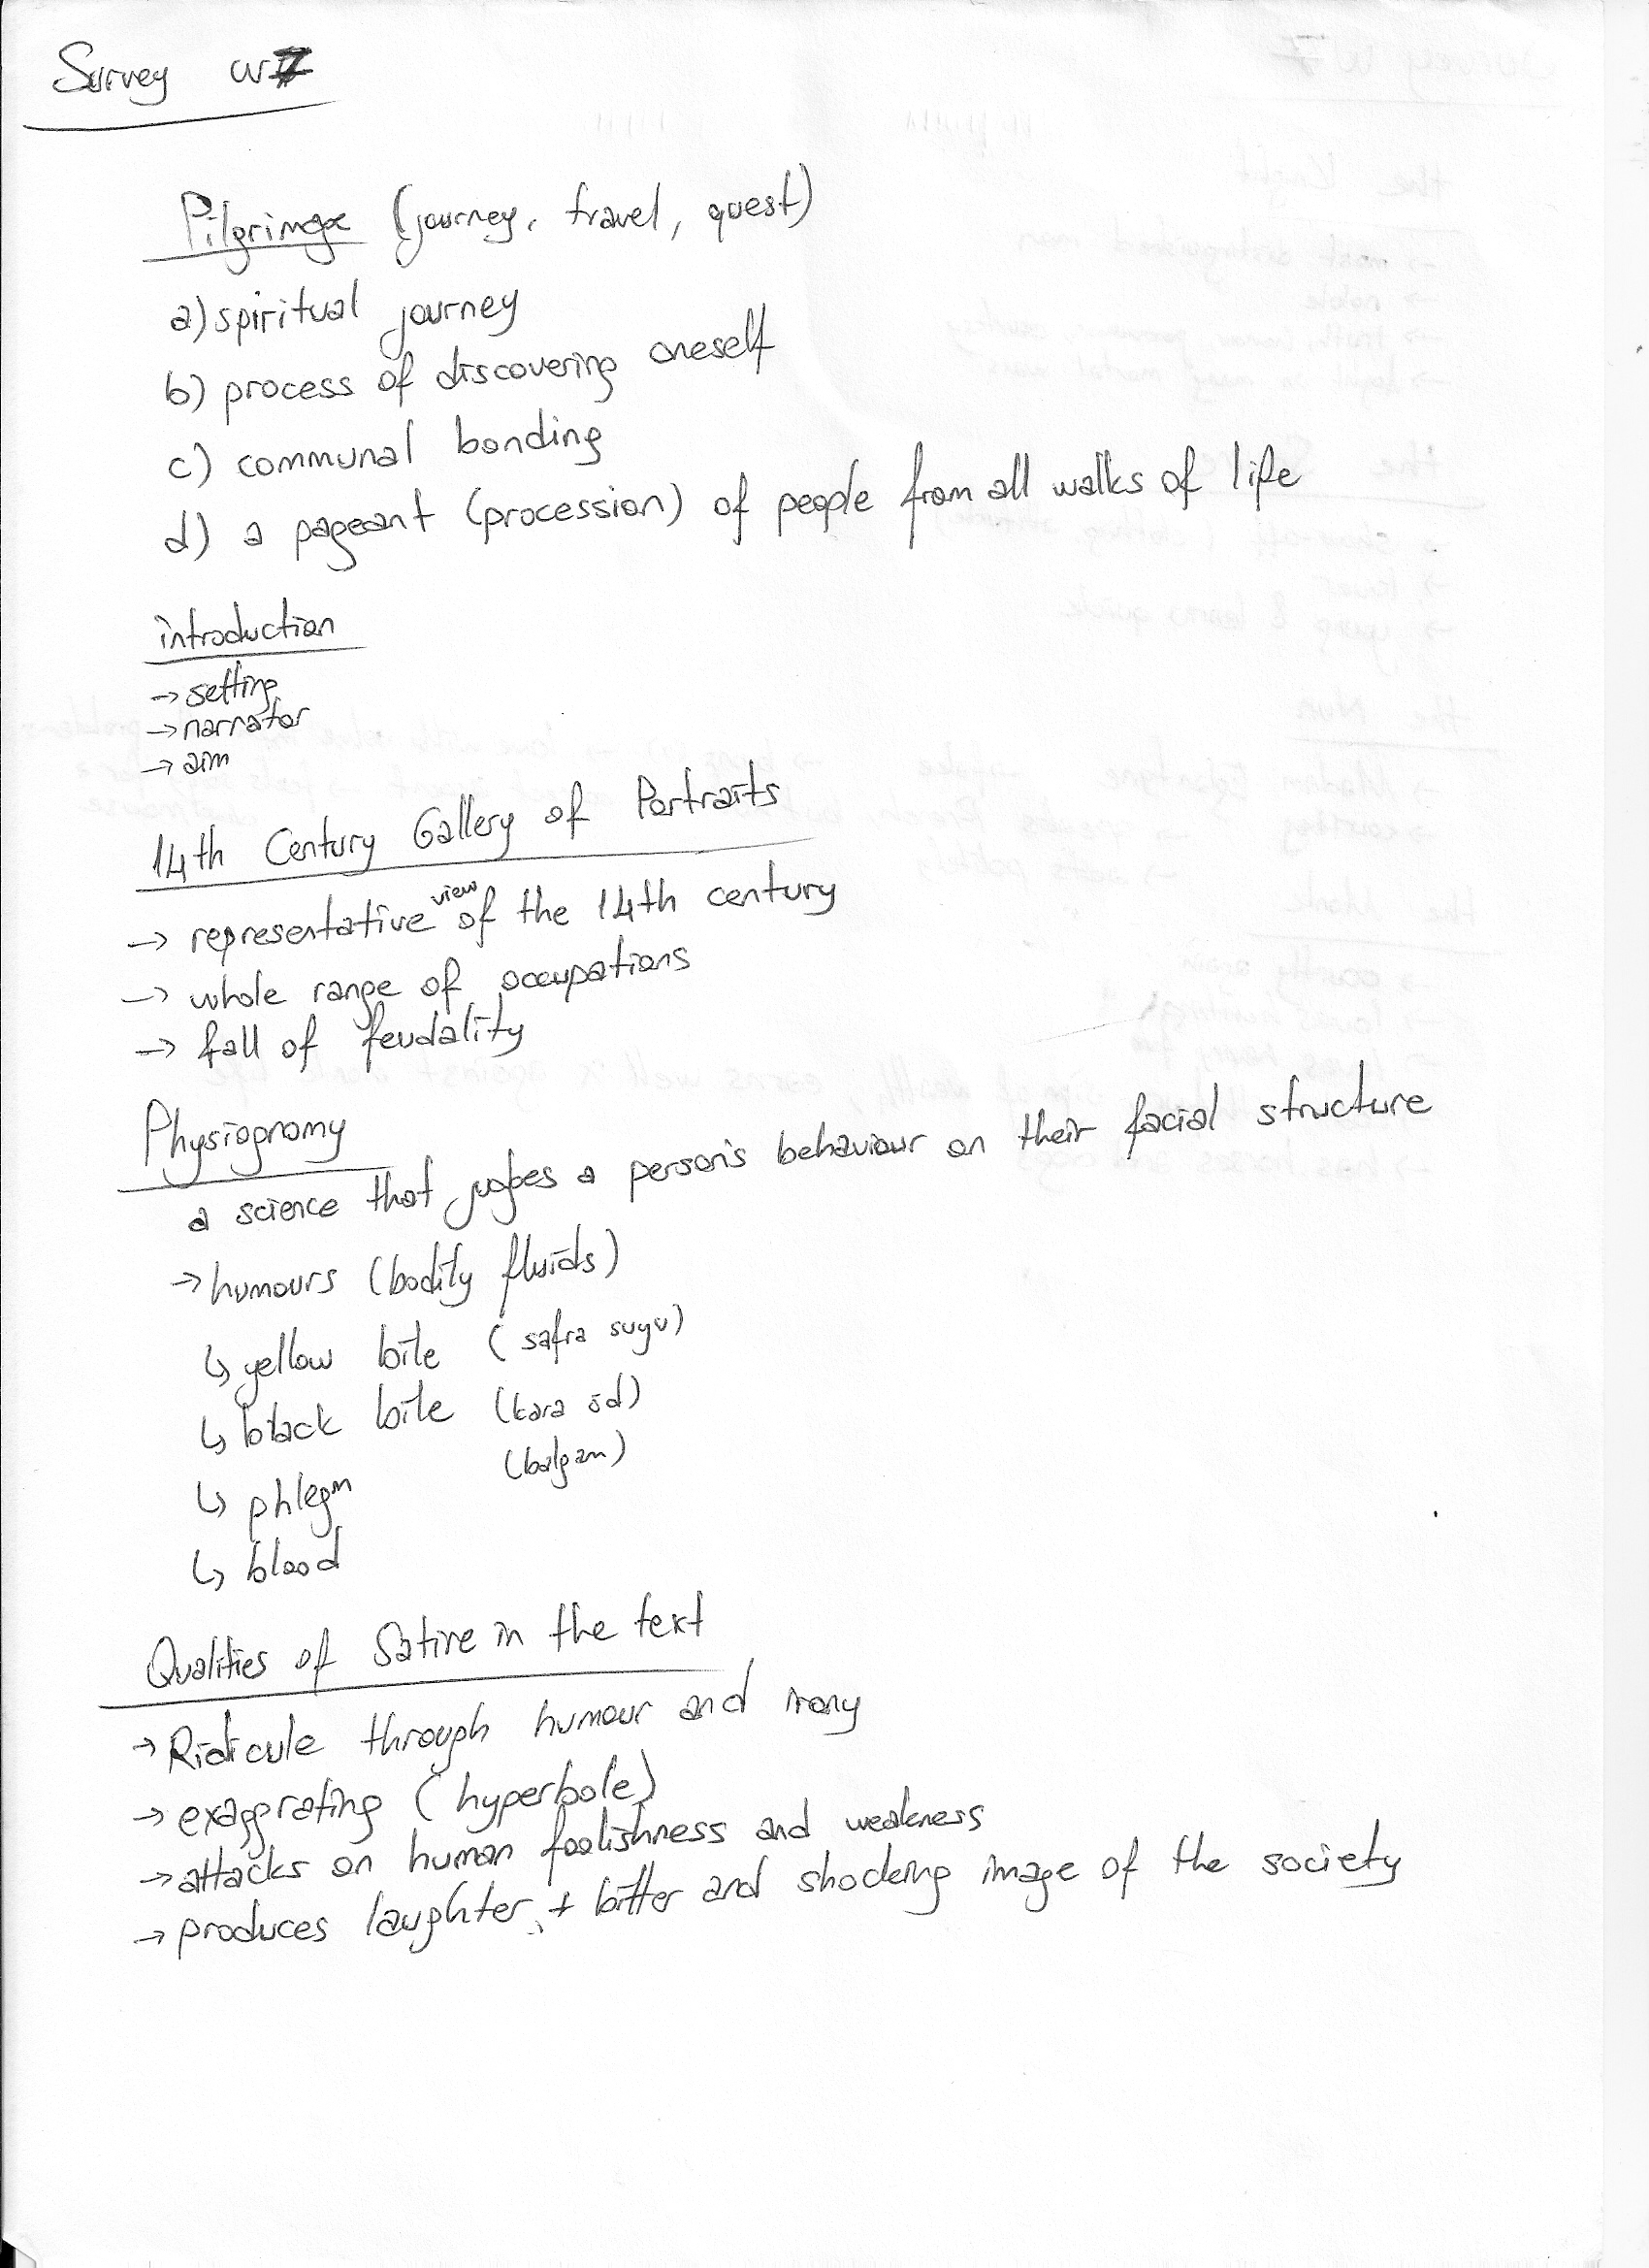 Survey W7
Pilgrimage (journey, travel, quest)
a) spiritual journey
b) process of discovering oneself
c) communal bonding
d) a pageant (procession) of people from all walks of life
introduction
→ setting
→ narrator
→ aim
14th Century Gallery of Portraits
→ representative view of the 14th century
→ whole range of occupations
→ fall of feudality
Physiognomy
a science that judges a person's behaviour on their facial structure
→ humours (bodily fluids)
↳ yellow bile (safra suyu)
↳ black bile (kara öd)
↳ phlegm (balgam)
↳ blood
Qualities of Satire in the text
→ Ridicule through humour and irony
→ exaggrating (hyperbole)
→ attacks on human foolishness and weakness
→ produces laughter + bitter and shocking image of the society